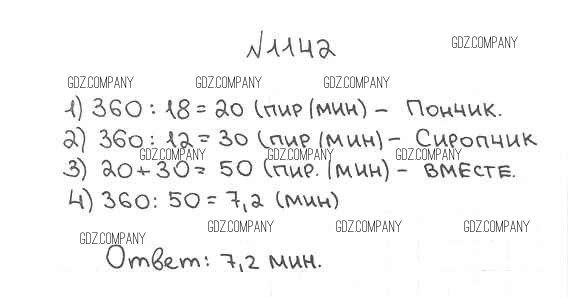 №1142
GDZ.COMPANY
GDZ.COMPANY GDZ.COMPANY GDZ.COMPANY
1) 360 : 18 = 20 (пир/мин) - Пончик.
2) 360 : 12 = 30 (пир/мин) - Сиропчик
GDZ.COMPANY GDZ.COMPANY GDZ.COMPANY
3) 20 + 30 = 50 (пир./мин) - вместе.
4) 360 : 50 = 7,2 (мин)
GDZ.COMPANY GDZ.COMPANY GDZ.COMPANY GDZ.COMPANY
Ответ: 7,2 мин.